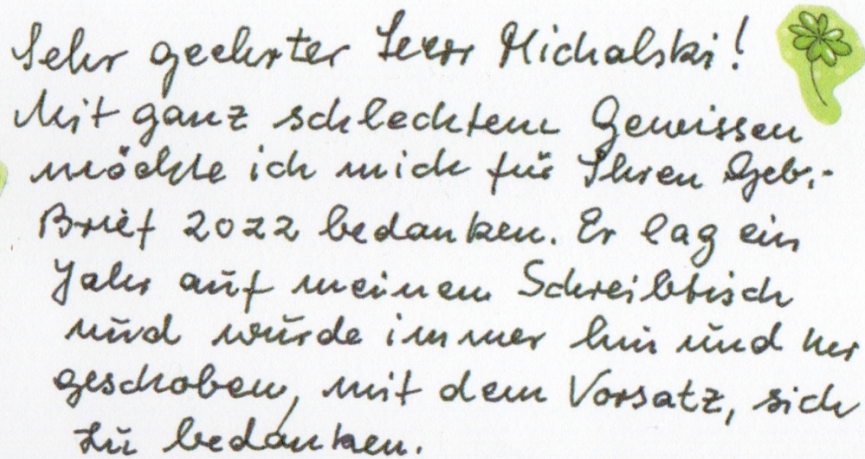 Sehr geehrter Herr Michalski!
Mit ganz schlechtem Gewissen
möchte ich mich für Ihren Geb.-
Brief 2022 bedanken. Er lag ein
Jahr auf meinem Schreibtisch
und wurde immer hin und her
geschoben, mit dem Vorsatz, sich
zu bedanken.